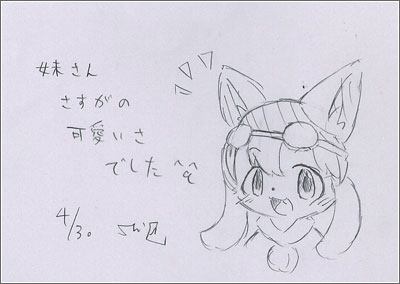 妹さん
さすがの
可愛いさ
でした^^
4/30